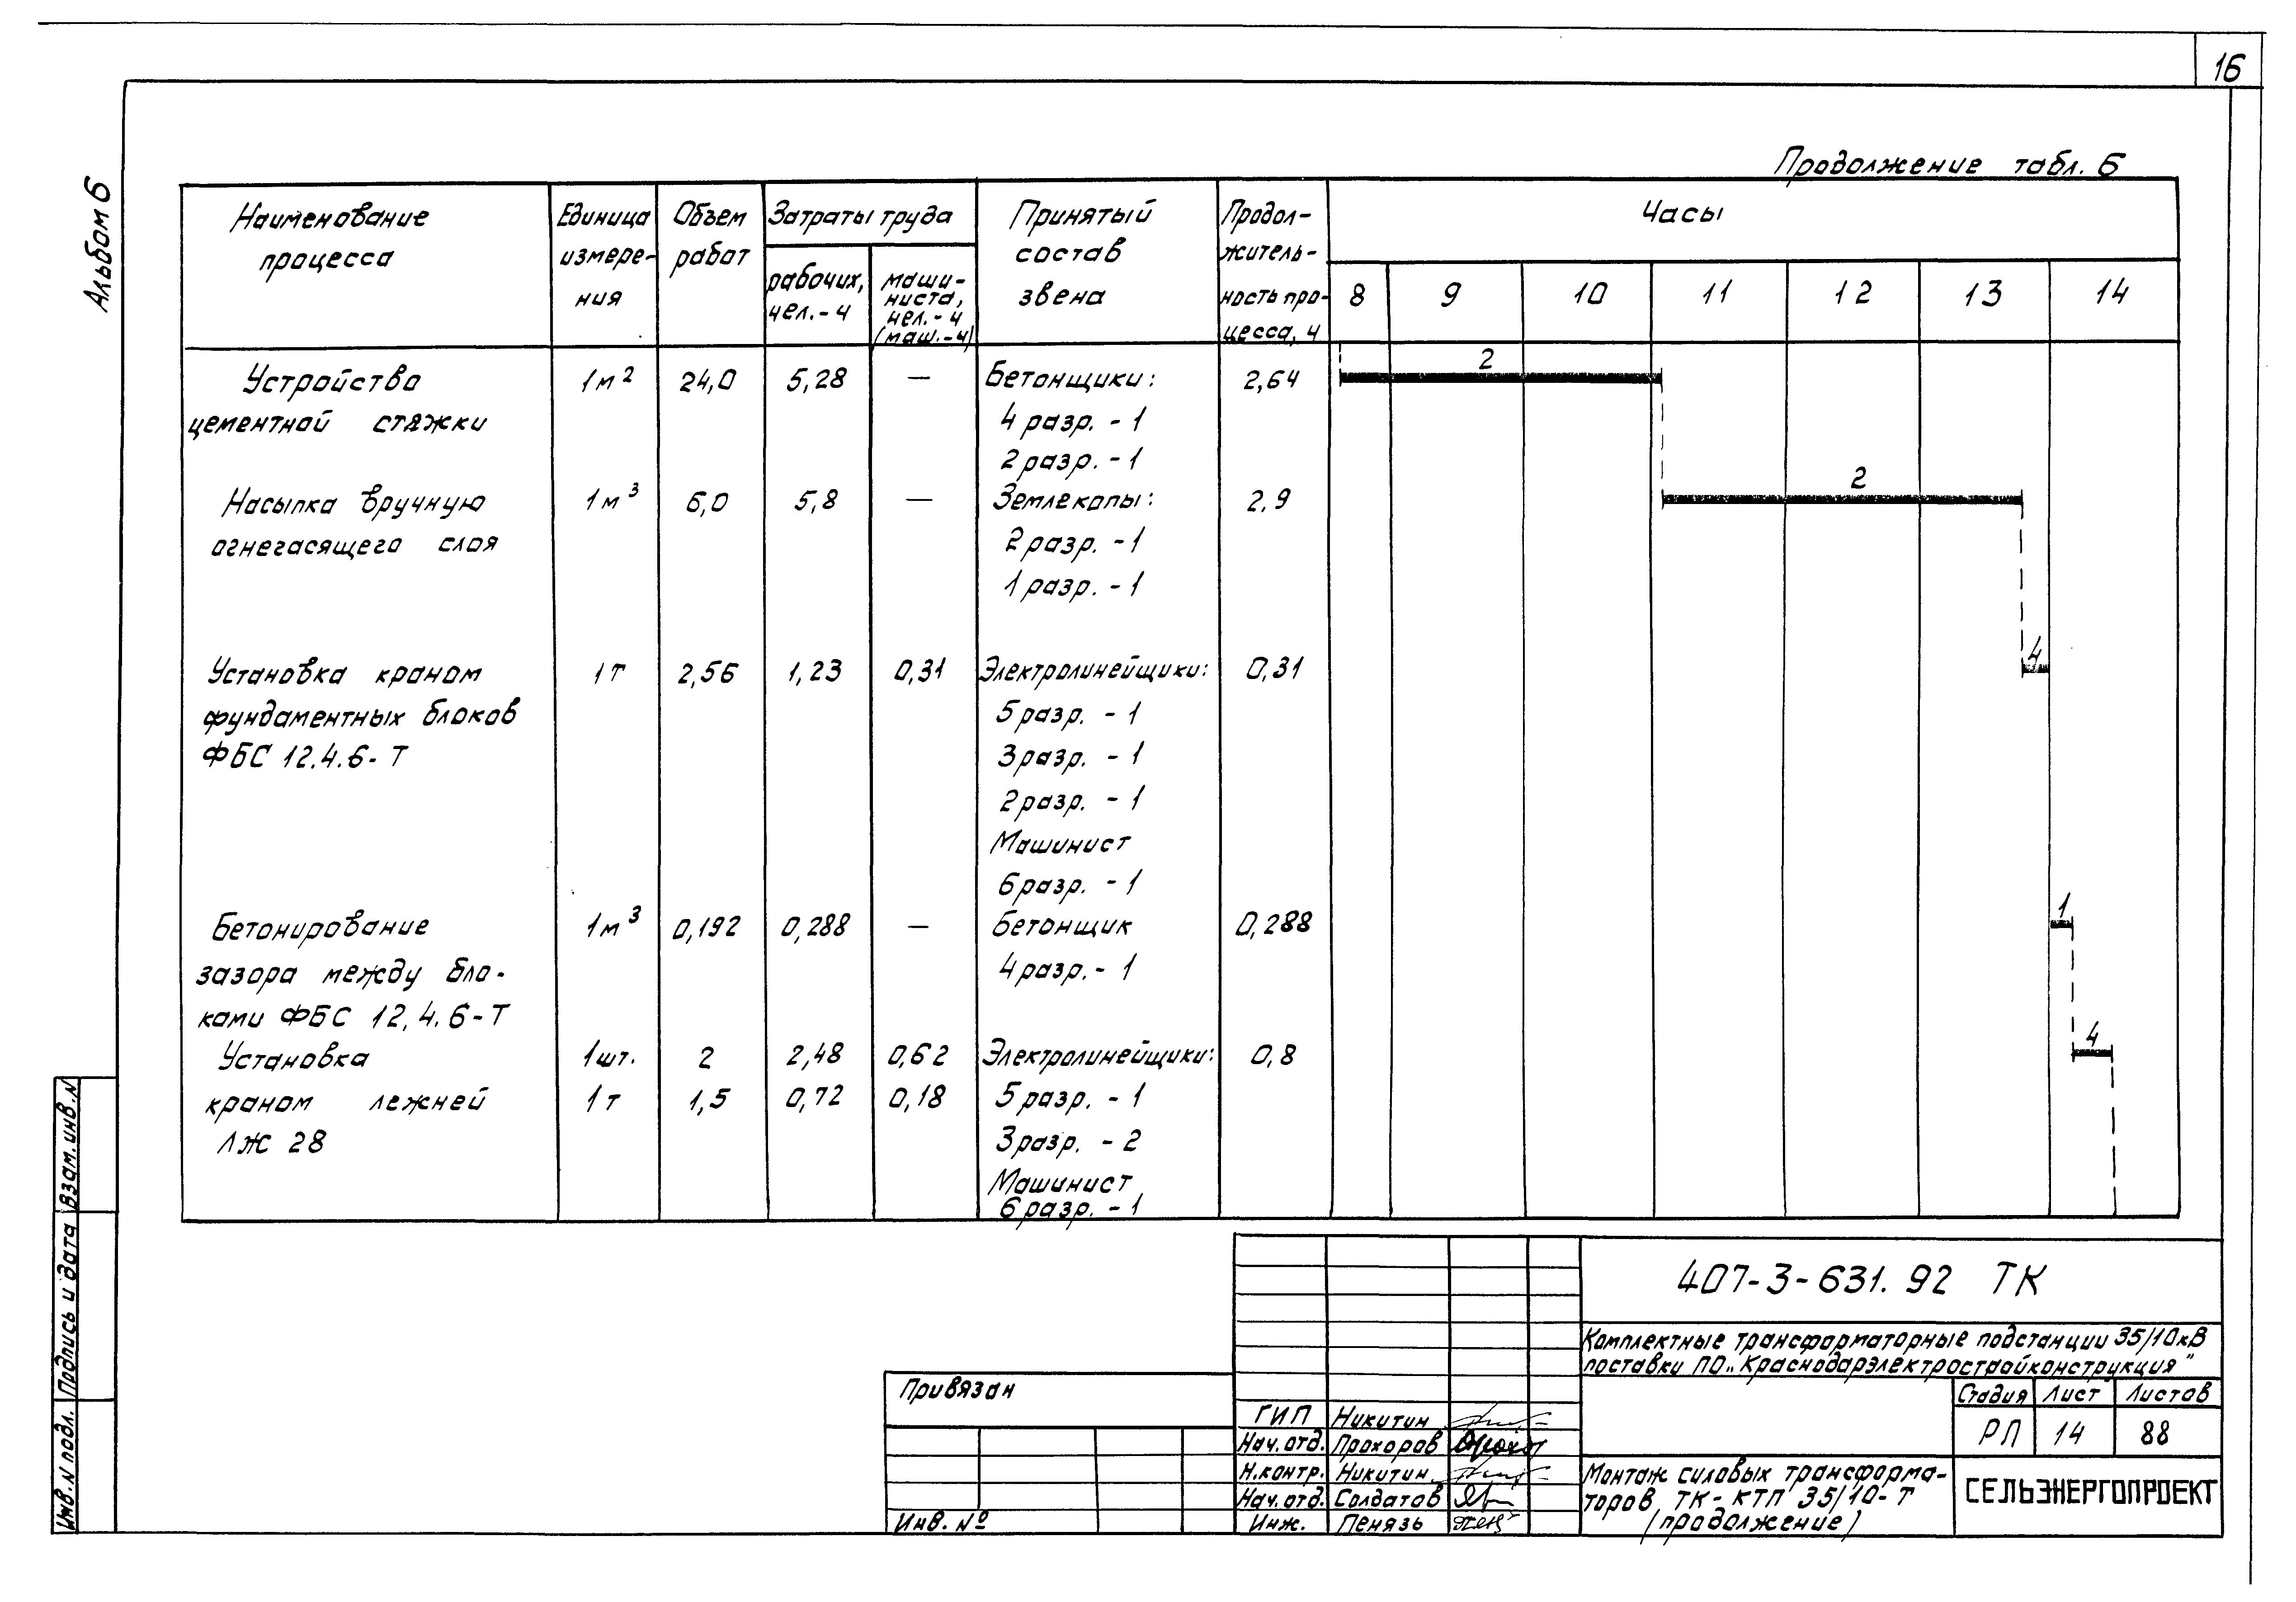 16
Альбом 6
Продолжение табл. 6
Наименование процесса
Единица измере-ния
Объем работ
Затраты труда
рабочих, чел.-ч
маши-ниста, чел.-ч (маш.-ч)
Принятый состав звена
Продол-житель-ность про-цесса, ч
Часы
8 9 10 11 12 13 14
Устройство 1м² 24,0 5,28 — Бетонщики: 2,64 2
цементной стяжки 4 разр. - 1
2 разр. - 1
Насыпка вручную 1м³ 6,0 5,8 — Землекопы: 2,9 2
огнегасящего слоя 2 разр. - 1
1 разр. - 1
Установка краном 1т 2,56 1,23 0,31 Электролинейщики: 0,31 4
фундаментных блоков 5 разр. - 1
ФБС 12.4.6-Т 3 разр. - 1
2 разр. - 1
Машинист
6 разр. - 1
Бетонирование 1м³ 0,192 0,288 — Бетонщик 0,288 1
зазора между бло- 4 разр. - 1
ками ФБС 12,4.6-Т
Установка 1шт. 2 2,48 0,62 Электролинейщики: 0,8 4
краном лежней 1т 1,5 0,72 0,18 5 разр. - 1
ЛЖ 28 3 разр. - 2
Машинист
6 разр. - 1
Инв. N подл. Подпись и дата Взам. инв. N
Привязан
Инв. №
407-3-631.92 ТК
Комплектные трансформаторные подстанции 35/10кВ
поставки ПО „Краснодарэлектростройконструкция"
Стадия Лист Листов
РП 14 88
ГИП Никитин
Нач. отд. Прохоров
Н.контр. Никитин
Нач. отд. Солдатов
Инж. Пенязь
Монтаж силовых трансформа-
торов ТК-КТП 35/10-Т
(продолжение)
СЕЛЬЭНЕРГОПРОЕКТ